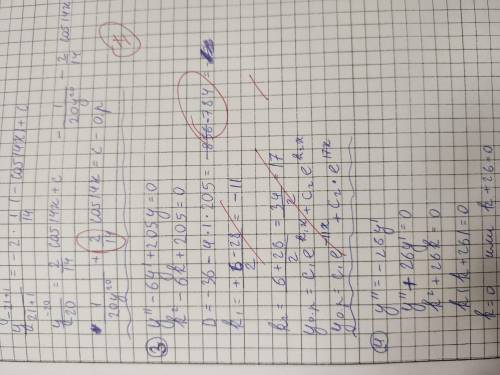 y^{-21+1}/-21+1 = -2 · 1/14 (-cos14x) + c
y^{-20}/-20 = 2/14 cos14x + c
- 1/20y^{20} - 2/14 cos14x
1/20y^{20} + 2/14 cos14x = c - o.p
③ y'' - 6y' + 205y = 0
k² - 6k + 205 = 0
D = -36 - 4·1·205 = -856-784 =
k₁ = +6 - 28/2 = -11
k₂ = 6+28/2 = 34/2 = 17
y o.p. = c₁e^{k₁x} + c₂e^{k₂x}
y o.p. = c₁e^{-11x} + c₂·e^{17x}
④ y'' = -26y'
y'' + 26y' = 0
k² + 26k = 0
k(k+26) = 0
k=0 или k+26=0